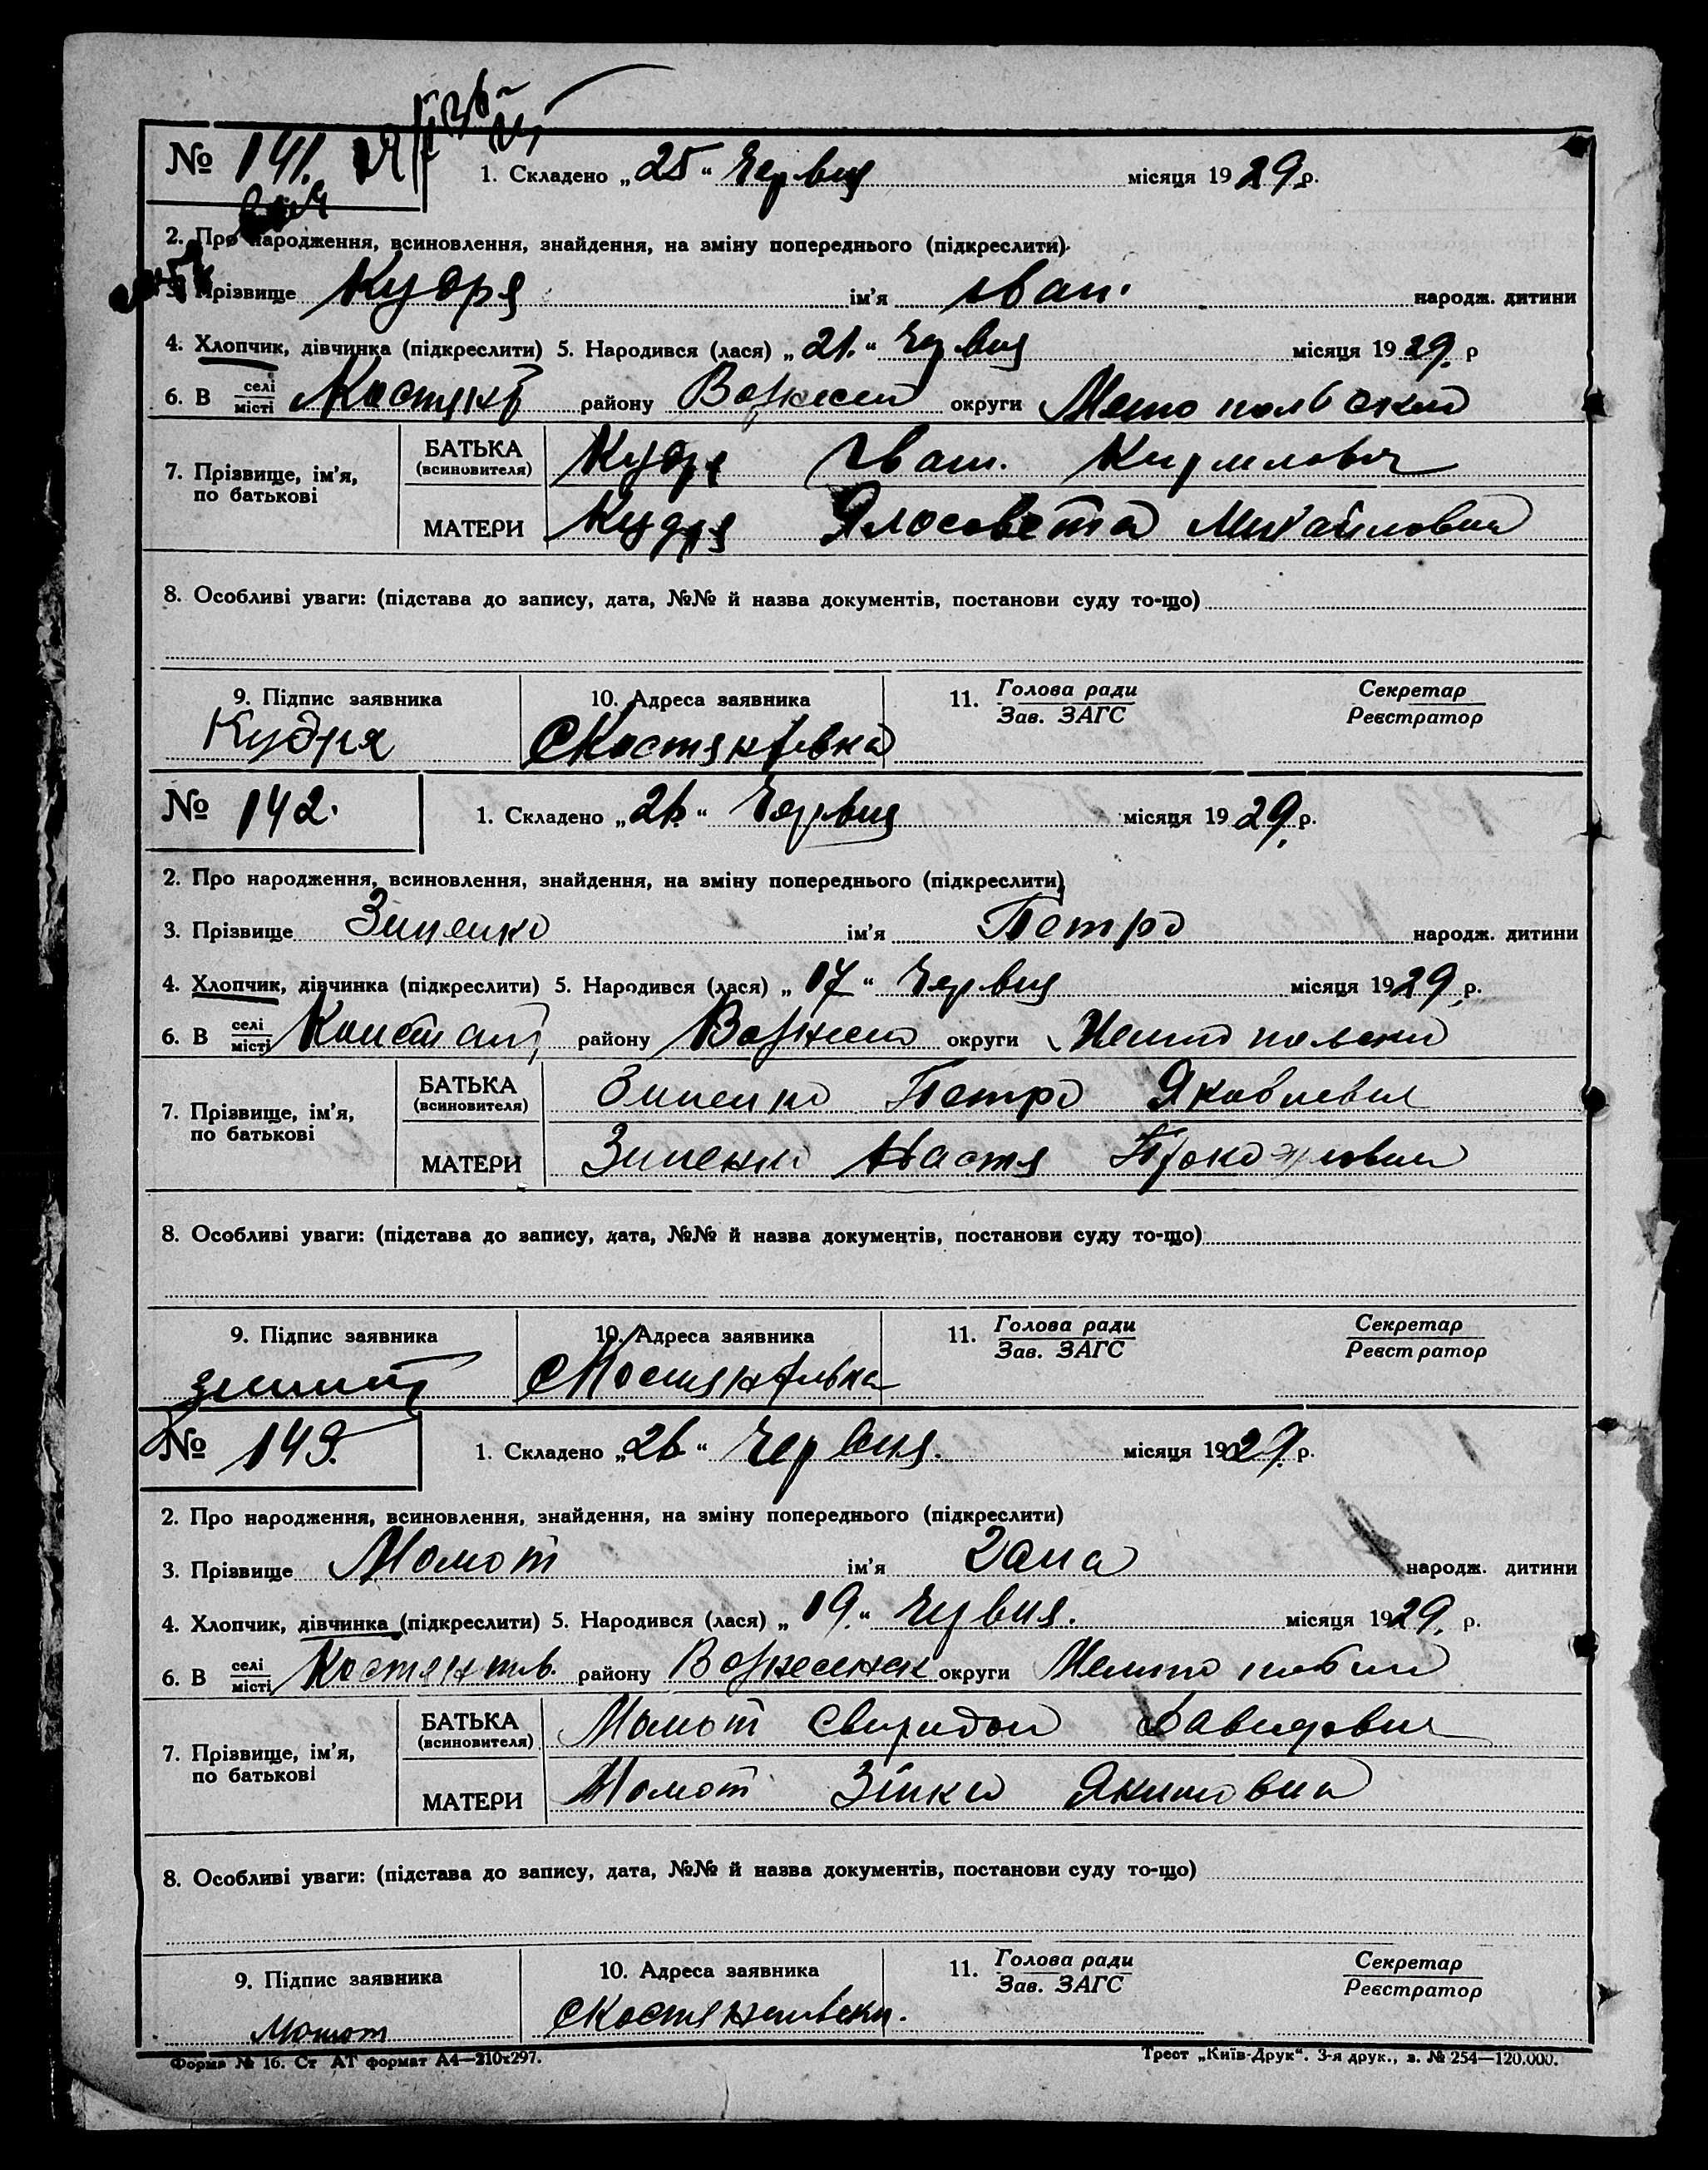 № 141. 1. Складено „25“ Червня місяця 1929 р.
2. Про народження, всиновлення, знайдення, на зміну попереднього (підкреслити).
3. Прізвище Кудря ім'я Іван народж. дитини
4. Хлопчик, дівчинка (підкреслити) 5. Народився (лася) „21.“ Червня місяця 1929. р
6. В селі/місті района округи
7. Прізвище, ім'я, по батькові
БАТЬКА (всиновителя) Кудря Іван Кирилович
МАТЕРИ Кудря Ялосовета Михайловна
8. Особливі уваги: (підстава до запису, дата, №№ й назва документів, постанови суду то-що)
9. Підпис заявника 10. Адреса заявника 11. Голова ради Зав. ЗАГС Секретар Реєстратор
Кудря
№ 142. 1. Складено „26.“ Червня місяця 1929. р.
2. Про народження, всиновлення, знайдення, на зміну попереднього (підкреслити)
3. Прізвище Зиненко ім'я Петро народж. дитини
4. Хлопчик, дівчинка (підкреслити) 5. Народився (лася) „17“ Червня місяця 1929 р.
6. В селі/місті Констант району округи
7. Прізвище, ім'я, по батькові
БАТЬКА (всиновителя) Зиненко Петро Яковлевич
МАТЕРИ Зиненко Настя
8. Особливі уваги: (підстава до запису, дата, №№ й назва документів, постанови суду то-що)
9. Підпис заявника 10. Адреса заявника 11. Голова ради Зав. ЗАГС Секретар Реєстратор
№ 143. 1. Складено „26.“ Червня. місяця 1929. р.
2. Про народження, всиновлення, знайдення, на зміну попереднього (підкреслити)
3. Прізвище Момот ім'я народж. дитини
4. Хлопчик, дівчинка (підкреслити) 5. Народився (лася) „19.“ Червня. місяця 1929. р.
6. В селі/місті Костянтів. району Вознесенск округи
7. Прізвище, ім'я, по батькові
БАТЬКА (всиновителя) Момот Свиридон Давидович
МАТЕРИ Момот Зінка Якимовна
8. Особливі уваги: (підстава до запису, дата, №№ й назва документів, постанови суду то-що)
9. Підпис заявника 10. Адреса заявника 11. Голова ради Зав. ЗАГС Секретар Реєстратор
Момот
Форма № 16. Ст АТ формат А4—210х297. Трест „Київ-Друк“. 3-я друк., з. № 254—120.000.